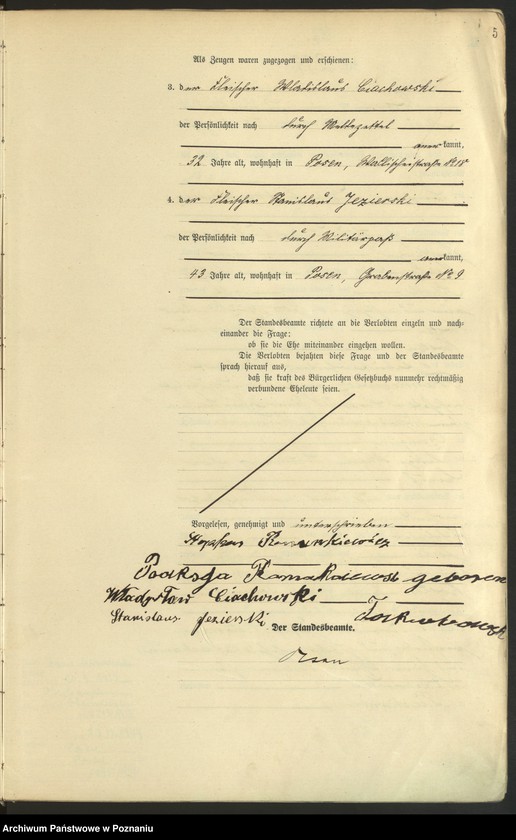 5
Als Zeugen waren zugezogen und erschienen:
3. der Fleischer Wladislaus Ciachowski
der Persönlichkeit nach durch Meldezettel
anerkannt,
32 Jahre alt, wohnhaft in Posen, Wallischeistraße
4. der Fleischer Stanislaus Jezierski
der Persönlichkeit nach durch Militärpaß
anerkannt,
43 Jahre alt, wohnhaft in Posen, Grabenstraße No 9
Der Standesbeamte richtete an die Verlobten einzeln und nach-
einander die Frage:
ob sie die Ehe miteinander eingehen wollen.
Die Verlobten bejahten diese Frage und der Standesbeamte
sprach hierauf aus,
daß sie kraft des Bürgerlichen Gesetzbuchs nunmehr rechtmäßig
verbundene Eheleute seien.
Vorgelesen, genehmigt und unterschrieben
geboren
Władysław Ciachowski
Stanislaus Jezierski
Der Standesbeamte.
Archiwum Państwowe w Poznaniu